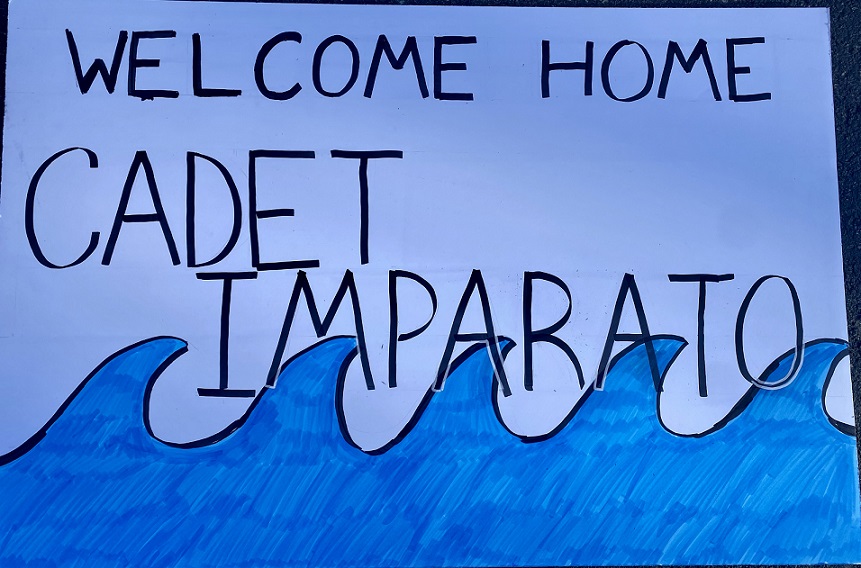 WELCOME HOME
CADET
IMPARATO